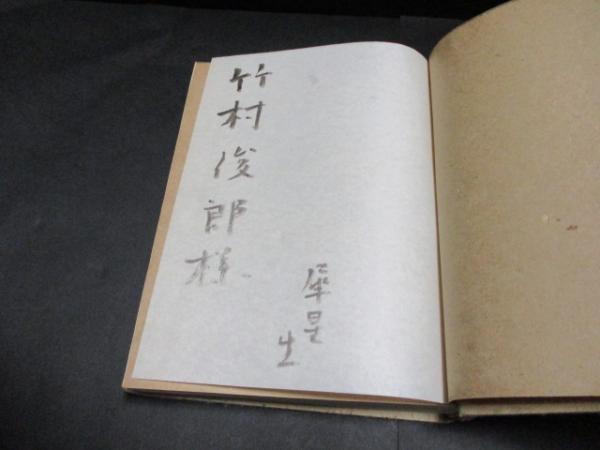 竹村俊郎様
犀星生